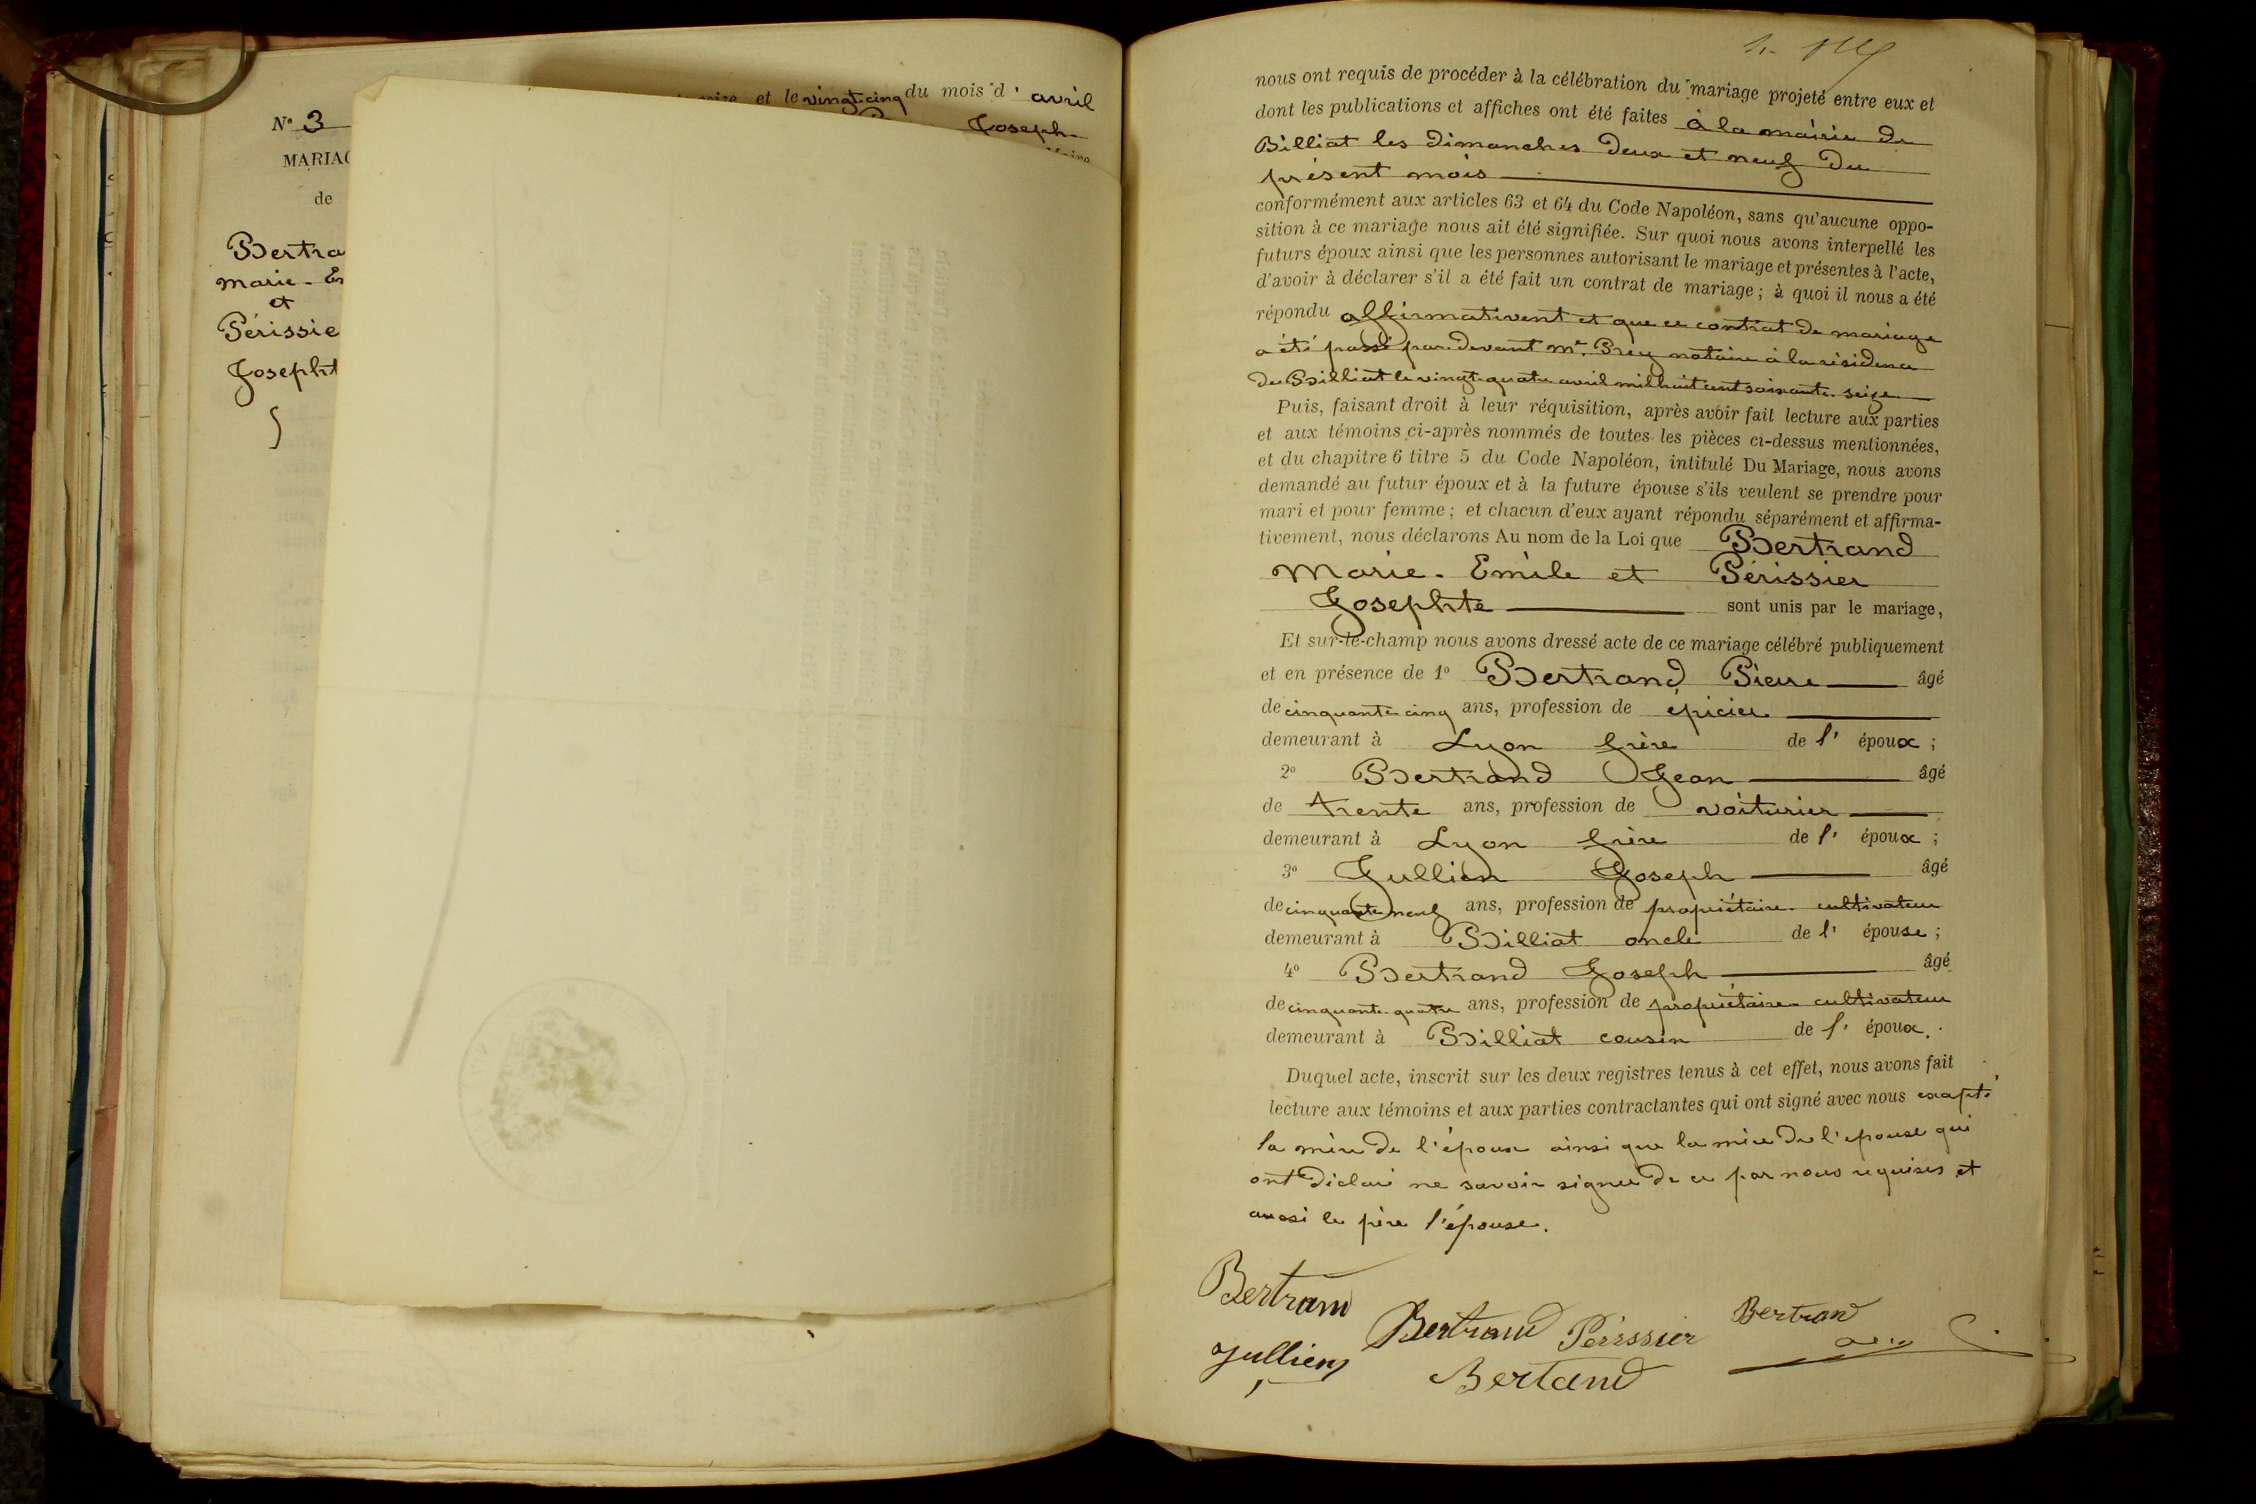 et le vingt-cinq du mois d'avril
Joseph
N° 3
MARIAG
de
Bertra
Marie-
et
Périssie
Josepht
nous ont requis de procéder à la célébration du mariage projeté entre eux et
dont les publications et affiches ont été faites à la mairie de
Billiat les dimanches deux et neuf du
présent mois
conformément aux articles 63 et 64 du Code Napoléon, sans qu'aucune oppo-
sition à ce mariage nous ait été signifiée. Sur quoi nous avons interpellé les
futurs époux ainsi que les personnes autorisant le mariage et présentes à l'acte,
d'avoir à déclarer s'il a été fait un contrat de mariage ; à quoi il nous a été
répondu affirmativent et que ce contrat de mariage
a été passé par-devant Me. Brey notaire à la résidence
de Billiat le vingt-quatre avril mil huit cent soixante-seize
Puis, faisant droit à leur réquisition, après avoir fait lecture aux parties
et aux témoins ci-après nommés de toutes les pièces ci-dessus mentionnées,
et du chapitre 6 titre 5 du Code Napoléon, intitulé Du Mariage, nous avons
demandé au futur époux et à la future épouse s'ils veulent se prendre pour
mari et pour femme ; et chacun d'eux ayant répondu séparément et affirma-
tivement, nous déclarons Au nom de la Loi que Bertrand
Marie-Emile et Périssier
Josephte sont unis par le mariage,
Et sur-le-champ nous avons dressé acte de ce mariage célébré publiquement
et en présence de 1° Bertrand Pierre âgé
de cinquante cinq ans, profession de épicier
demeurant à Lyon frère de l'époux ;
2° Bertrand Jean âgé
de trente ans, profession de voiturier
demeurant à Lyon frère de l'époux ;
3° Jullien Joseph âgé
de cinquante neuf ans, profession de propriétaire-cultivateur
demeurant à Billiat oncle de l'épouse ;
4° Bertrand Joseph âgé
de cinquante-quatre ans, profession de propriétaire-cultivateur
demeurant à Billiat cousin de l'époux.
Duquel acte, inscrit sur les deux registres tenus à cet effet, nous avons fait
lecture aux témoins et aux parties contractantes qui ont signé avec nous excepté
la mère de l'époux ainsi que la mère de l'epouse qui
ont déclaré ne savoir signer de ce par nous requises et
aussi le père l'épouse.
Bertrand
Bertrand Périssier Bertrand
Jullien
Bertand